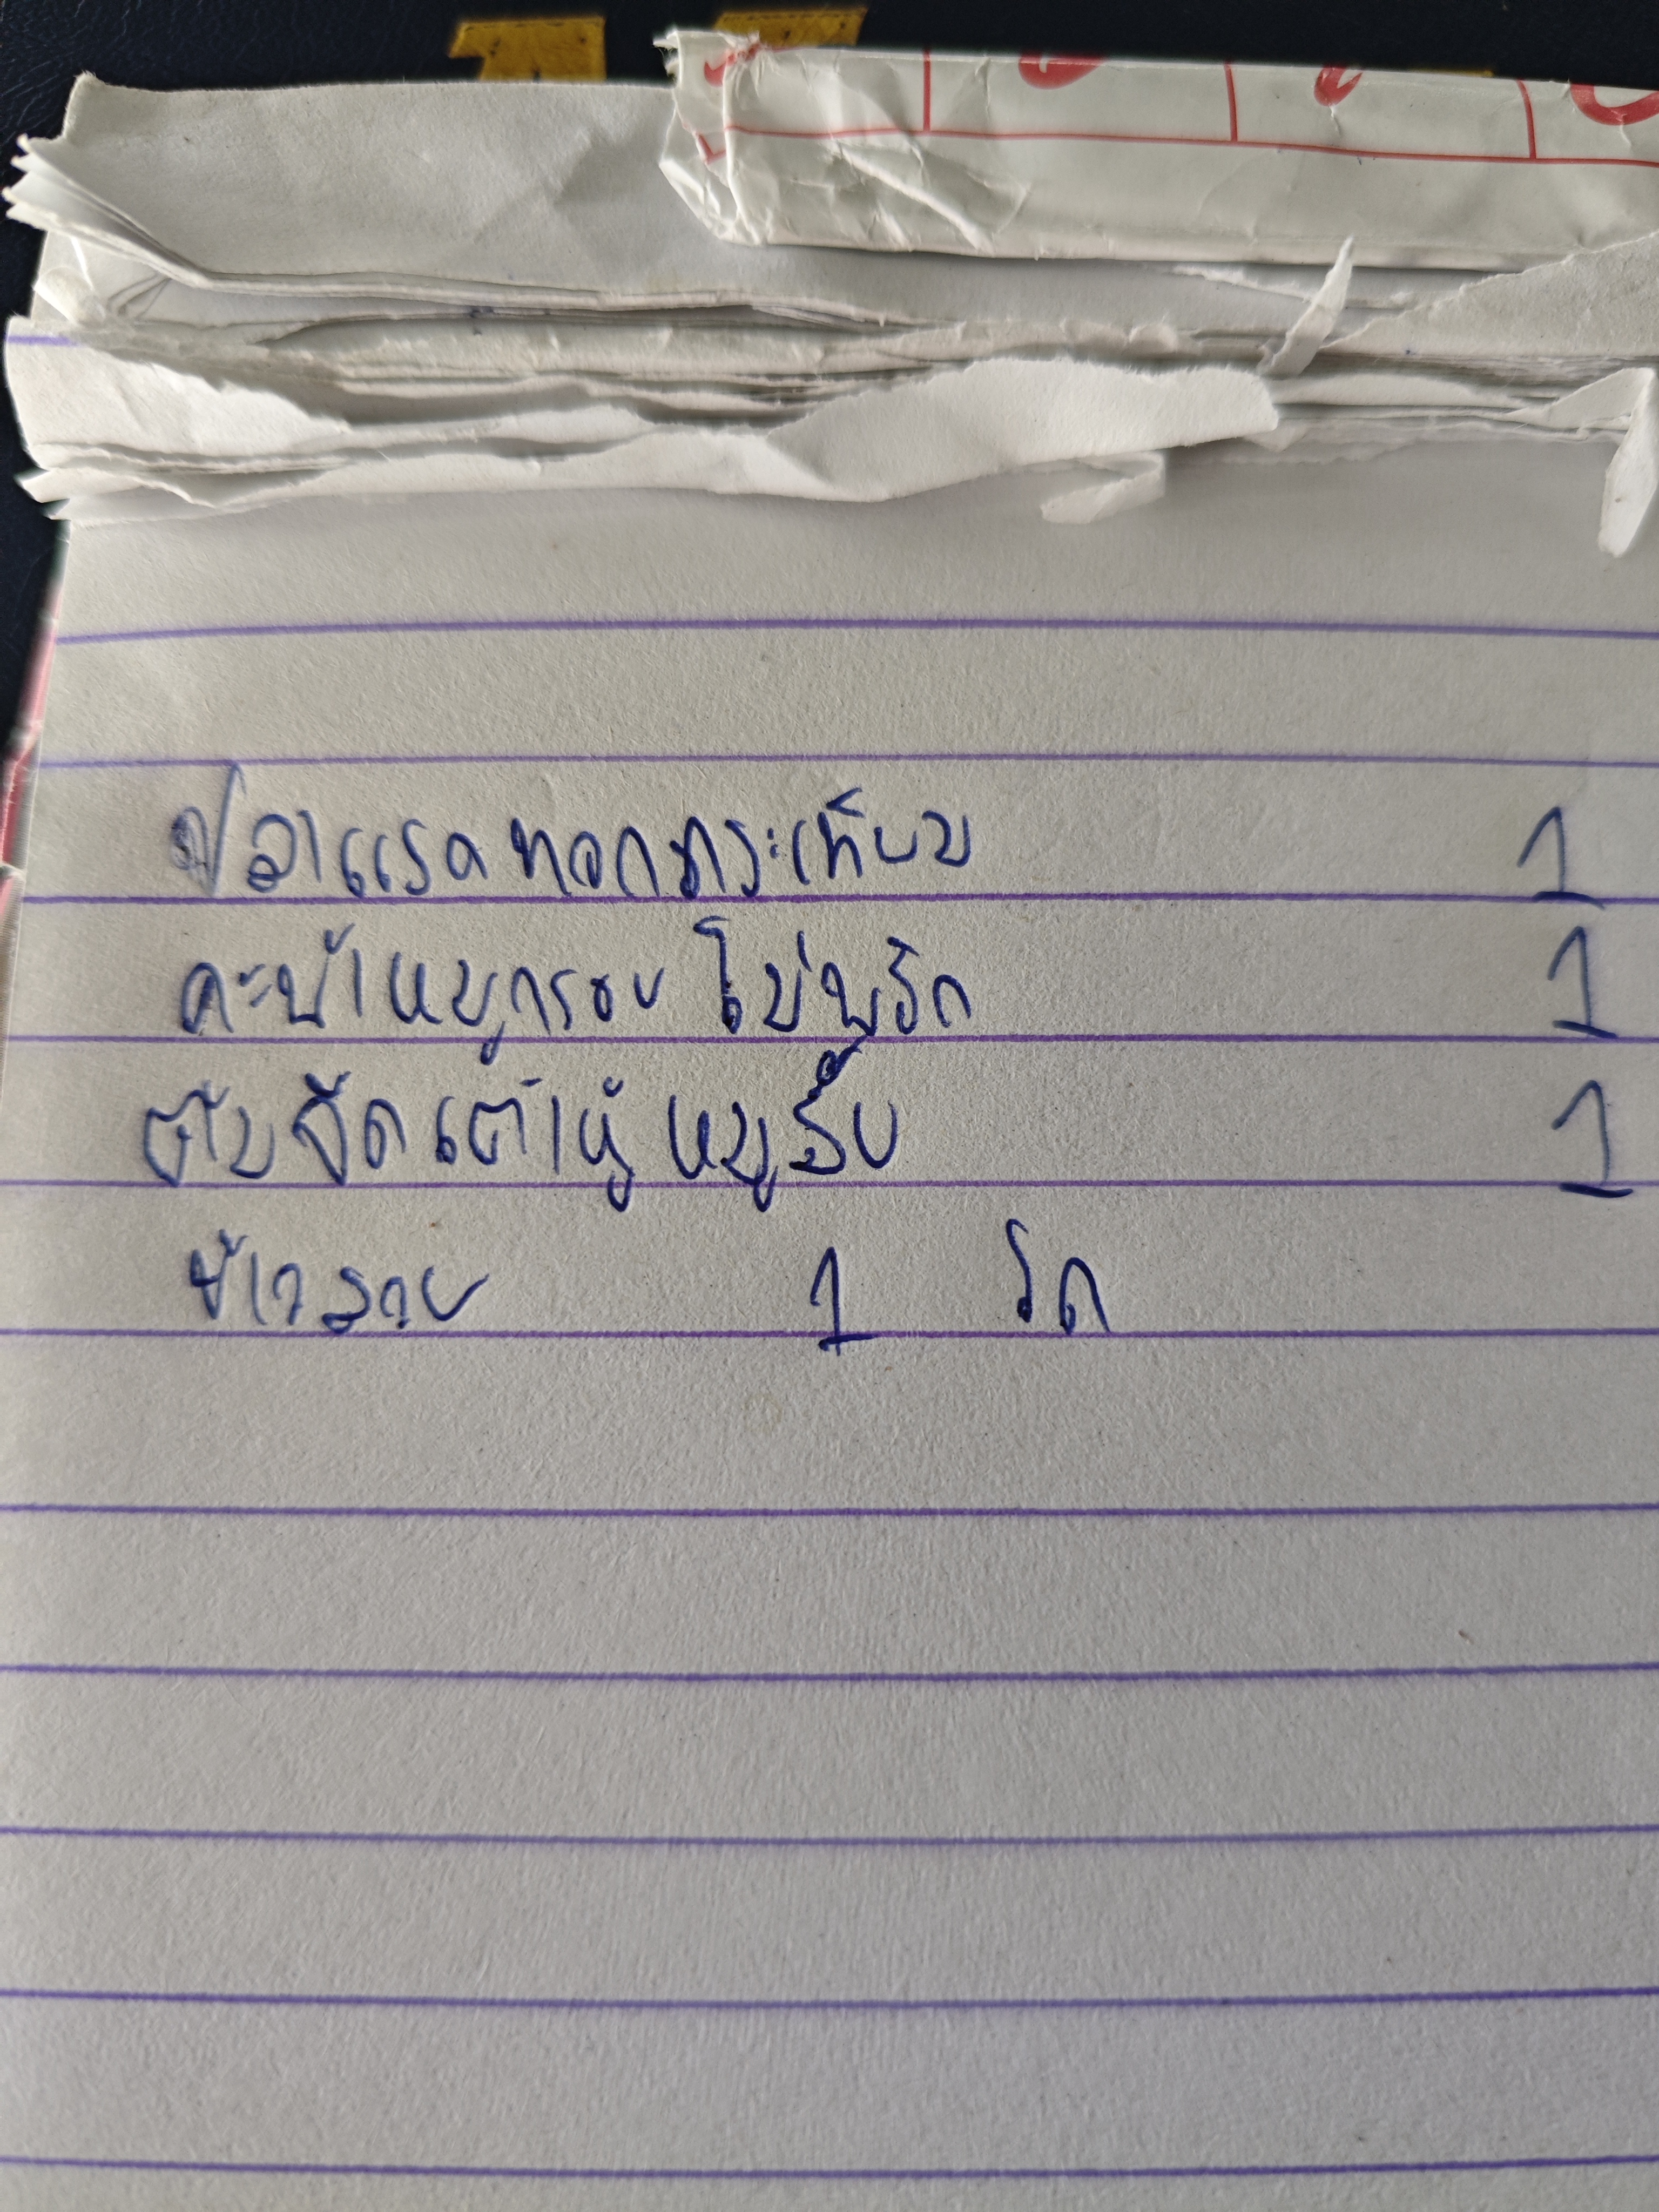 ปลาแรดทอดกระเทียม 1
คะน้าหมูกรอบ ไม่พริก 1
ต้มจืดเต้าหู้ หมูสับ 1
ข้าวสวย 1 โถ